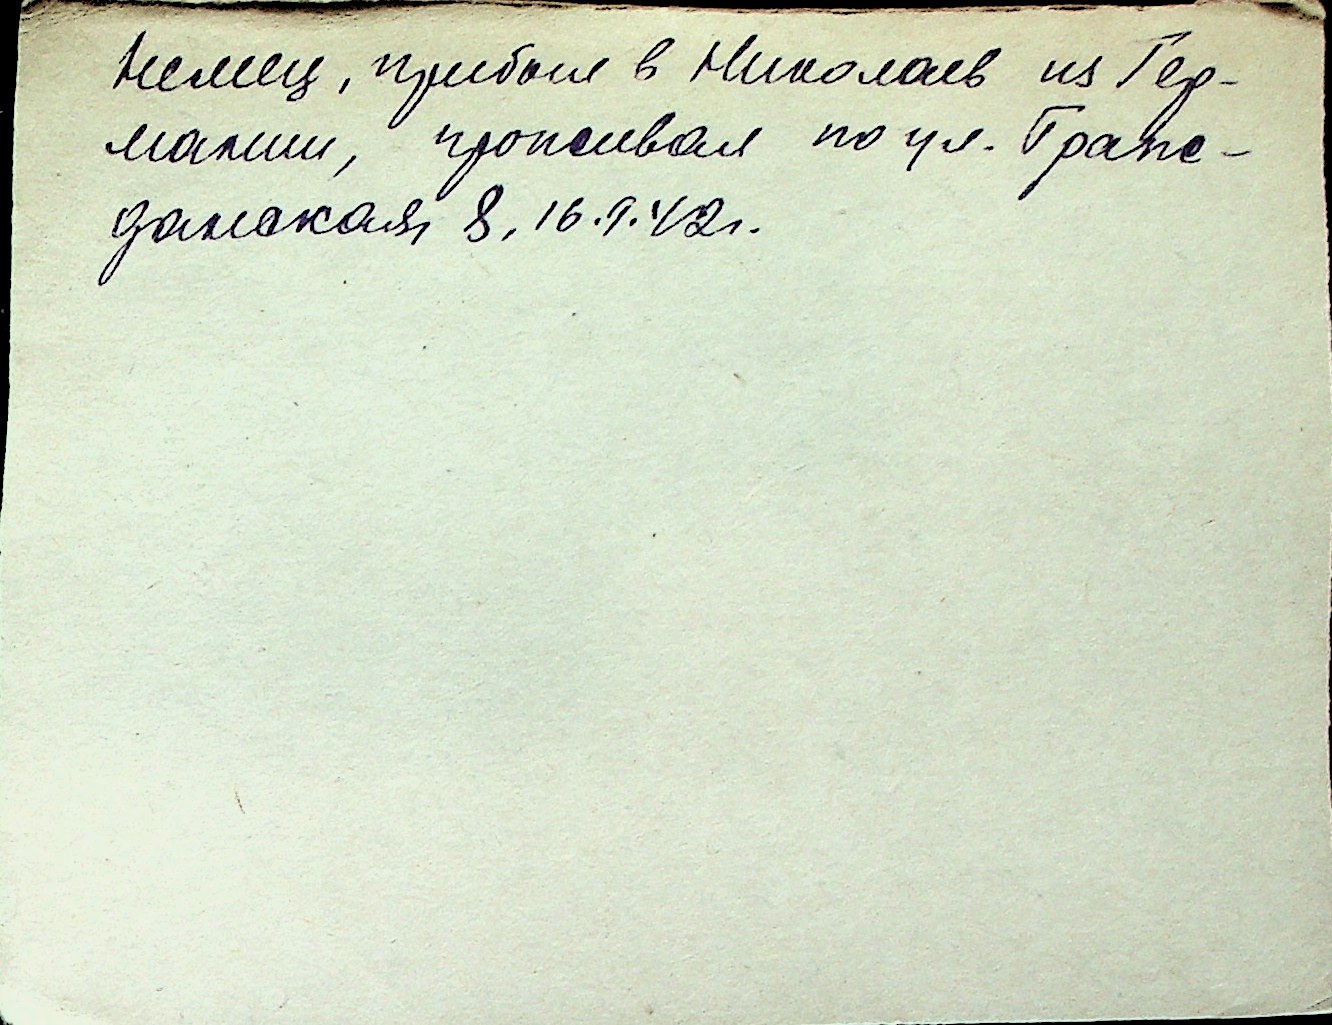 Немец, прибыл в Николаев из Гер-
мании, проживал по ул. Граж-
данская, 8, 16.9.42г.